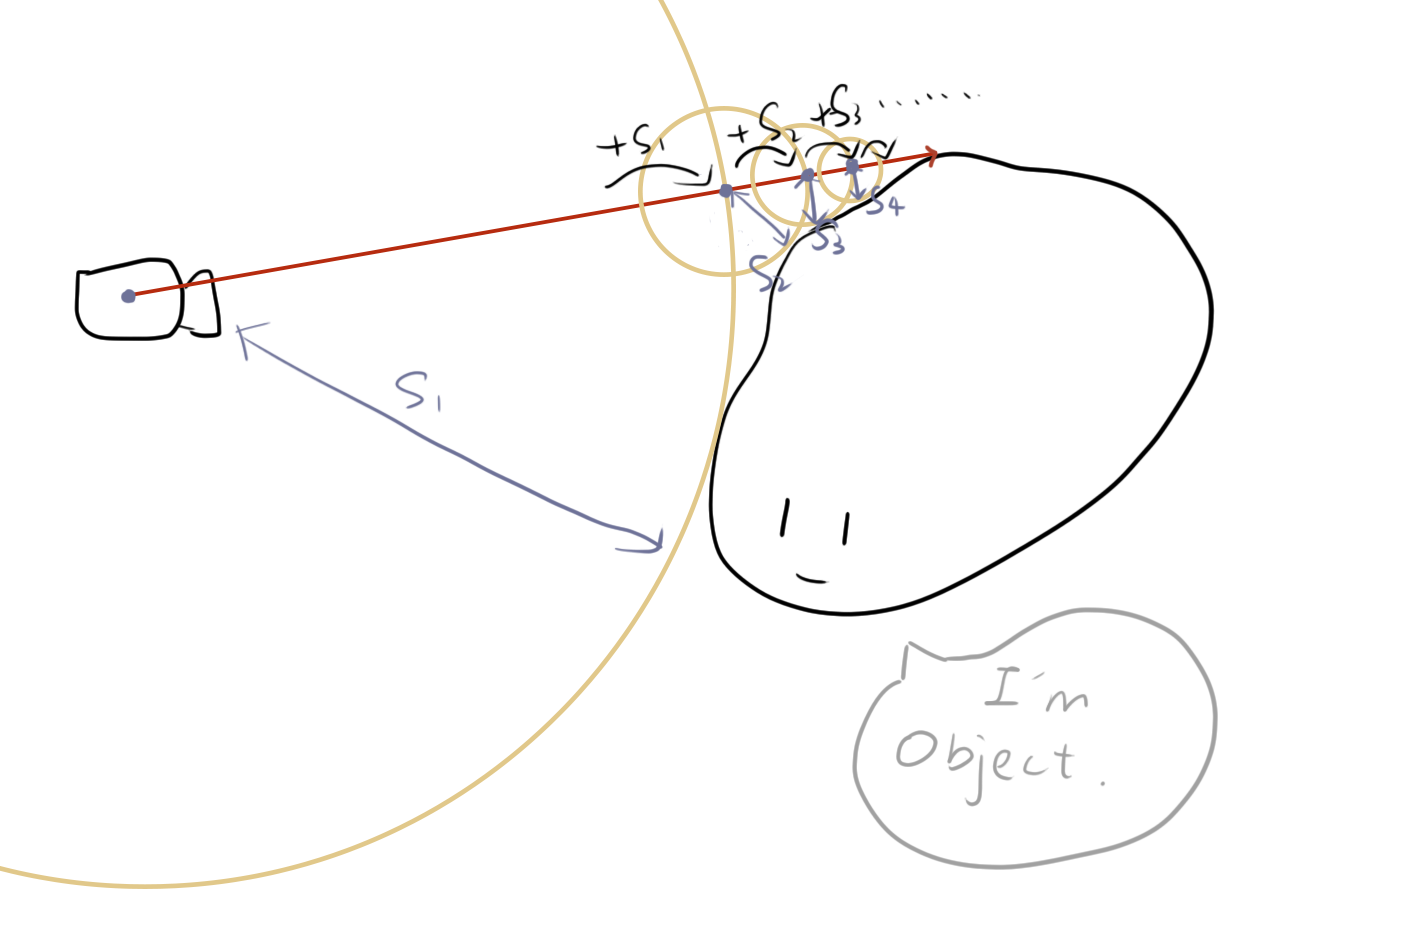 +S₁
+S₂
+S₃ .......
S₄
S₃
S₂
S₁
I'm
Object.